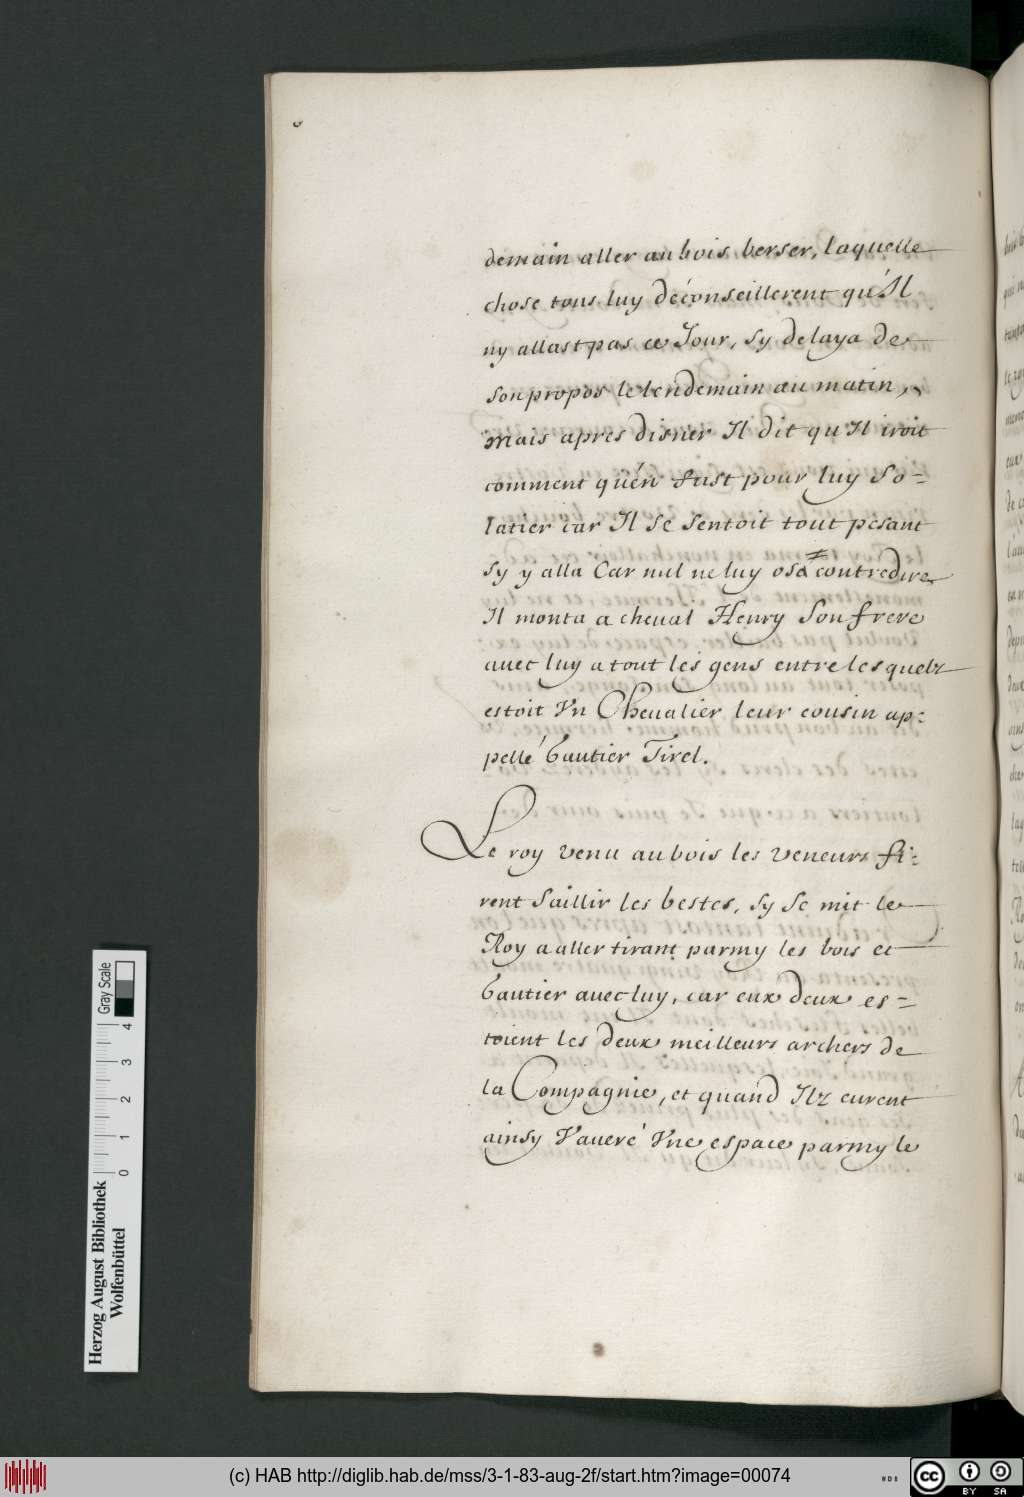 demain aller au bois berser, laquelle
chose tous luy déconseillerent qu'Il
ny allast pas ce Jour, sy delaya de
son propos le lendemain au matin,
mais apres disner Il dit qu Il iroit
comment qu'én fust pour luy so-
latier car Il se sentoit tout pesant
sy y alla Car nul ne luy osa contredire
Il monta a cheval Henry Son frere
avec luy a tout les gens entre lesquelz
estoit Vn Chevalier leur cousin ap-
pellé Gautier Tirel.
Le roy venu au bois les veneurs fi-
rent saillir les bestes, sy se mit le
Roy a aller tirant parmy les bois et
Gautier avec luy, car eux deux es-
toient les deux meilleurs archers de
la Compagnie, et quand Ilz eurent
ainsy Vaucré Vne espace parmy le
Herzog August Bibliothek
Wolfenbüttel
Gray Scale
0 1 2 3 4
(c) HAB http://diglib.hab.de/mss/3-1-83-aug-2f/start.htm?image=00074
cc BY SA